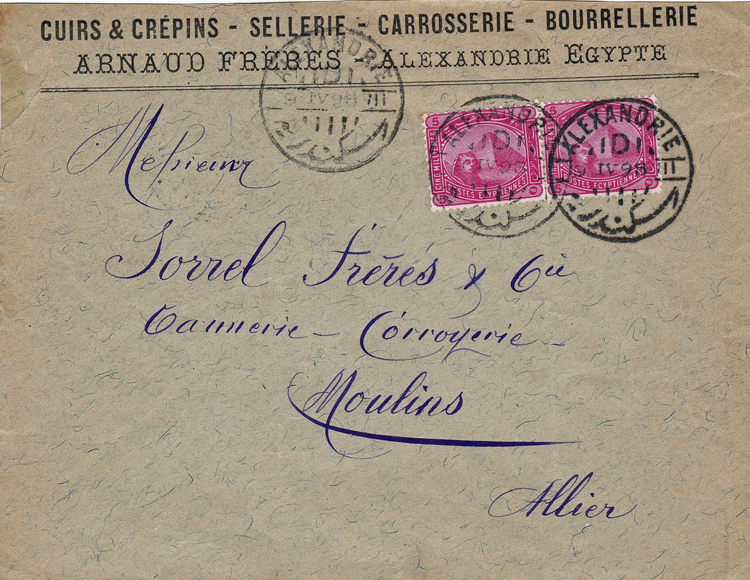 CUIRS & CRÉPINS - SELLERIE - CARROSSERIE - BOURRELLERIE
ARNAUD FRÈRES - ALEXANDRIE EGYPTE
ALEXANDRIE
IV 98
ALEXANDRIE
IV 98
ALEXANDRIE
IV 98
POSTES EGYPTIENNES
POSTES EGYPTIENNES
Messieurs
Sorrel Frères & Cie
Tannerie - Corroyerie -
Moulins
Allier